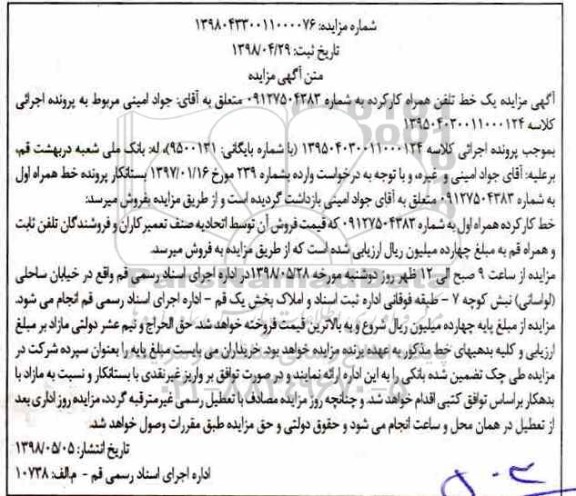 شماره مزایده: ۱۳۹۸۰۴۳۳۰۰۱۱۰۰۰۰۷۶
تاریخ ثبت: ۱۳۹۸/۰۴/۲۹
متن آگهی مزایده
آگهی مزایده یک خط تلفن همراه کارکرده به شماره ۰۹۱۲۷۵۰۴۳۸۳ متعلق به آقای: جواد امینی مربوط به پرونده اجرائی
کلاسه ۱۳۹۵۰۴۰۳۰۰۱۱۰۰۰۱۲۴
بموجب پرونده اجرائی کلاسه ۱۳۹۵۰۴۰۳۰۰۱۱۰۰۰۱۲۴ (با شماره بایگانی: ۹۵۰۰۱۳۱)، له: بانک ملی شعبه دربهشت قم،
برعلیه: آقای جواد امینی و غیره، و با توجه به درخواست وارده بشماره ۲۳۹ مورخ ۱۳۹۷/۰۱/۱۶ بستانکار پرونده خط همراه اول
به شماره ۰۹۱۲۷۵۰۴۳۸۳ متعلق به آقای جواد امینی بازداشت گردیده است و از طریق مزایده بفروش میرسد:
خط کارکرده همراه اول به شماره ۰۹۱۲۷۵۰۴۳۸۳ که قیمت فروش آن توسط اتحادیه صنف تعمیرکاران و فروشندگان تلفن ثابت
و همراه قم به مبلغ چهارده میلیون ریال ارزیابی شده است که از طریق مزایده به فروش میرسد.
مزایده از ساعت ۹ صبح الی ۱۲ ظهر روز دوشنبه مورخه ۱۳۹۸/۰۵/۲۸ در اداره اجرای اسناد رسمی قم واقع در خیابان ساحلی
(لواسانی) نبش کوچه ۷ - طبقه فوقانی اداره ثبت اسناد و املاک بخش یک قم - اداره اجرای اسناد رسمی قم انجام می شود.
مزایده از مبلغ پایه چهارده میلیون ریال شروع و به بالاترین قیمت فروخته خواهد شد. حق الحراج و نیم عشر دولتی مازاد بر مبلغ
ارزیابی و کلیه بدهیهای خط مذکور به عهده برنده مزایده خواهد بود. خریداران می بایست مبلغ پایه را بعنوان سپرده شرکت در
مزایده طی چک تضمین شده بانکی را به این اداره ارائه نمایند و در صورت توافق بر واریز غیرنقدی با بستانکار و نسبت به مازاد با
بدهکار براساس توافق کتبی اقدام خواهد شد. و چنانچه روز مزایده مصادف با تعطیل رسمی غیرمترقبه گردد، مزایده روز اداری بعد
از تعطیل در همان محل و ساعت انجام می شود و حقوق دولتی و حق مزایده طبق مقررات وصول خواهد شد.
تاریخ انتشار: ۱۳۹۸/۰۵/۰۵
اداره اجرای اسناد رسمی قم - م.الف: ۱۰۷۳۸